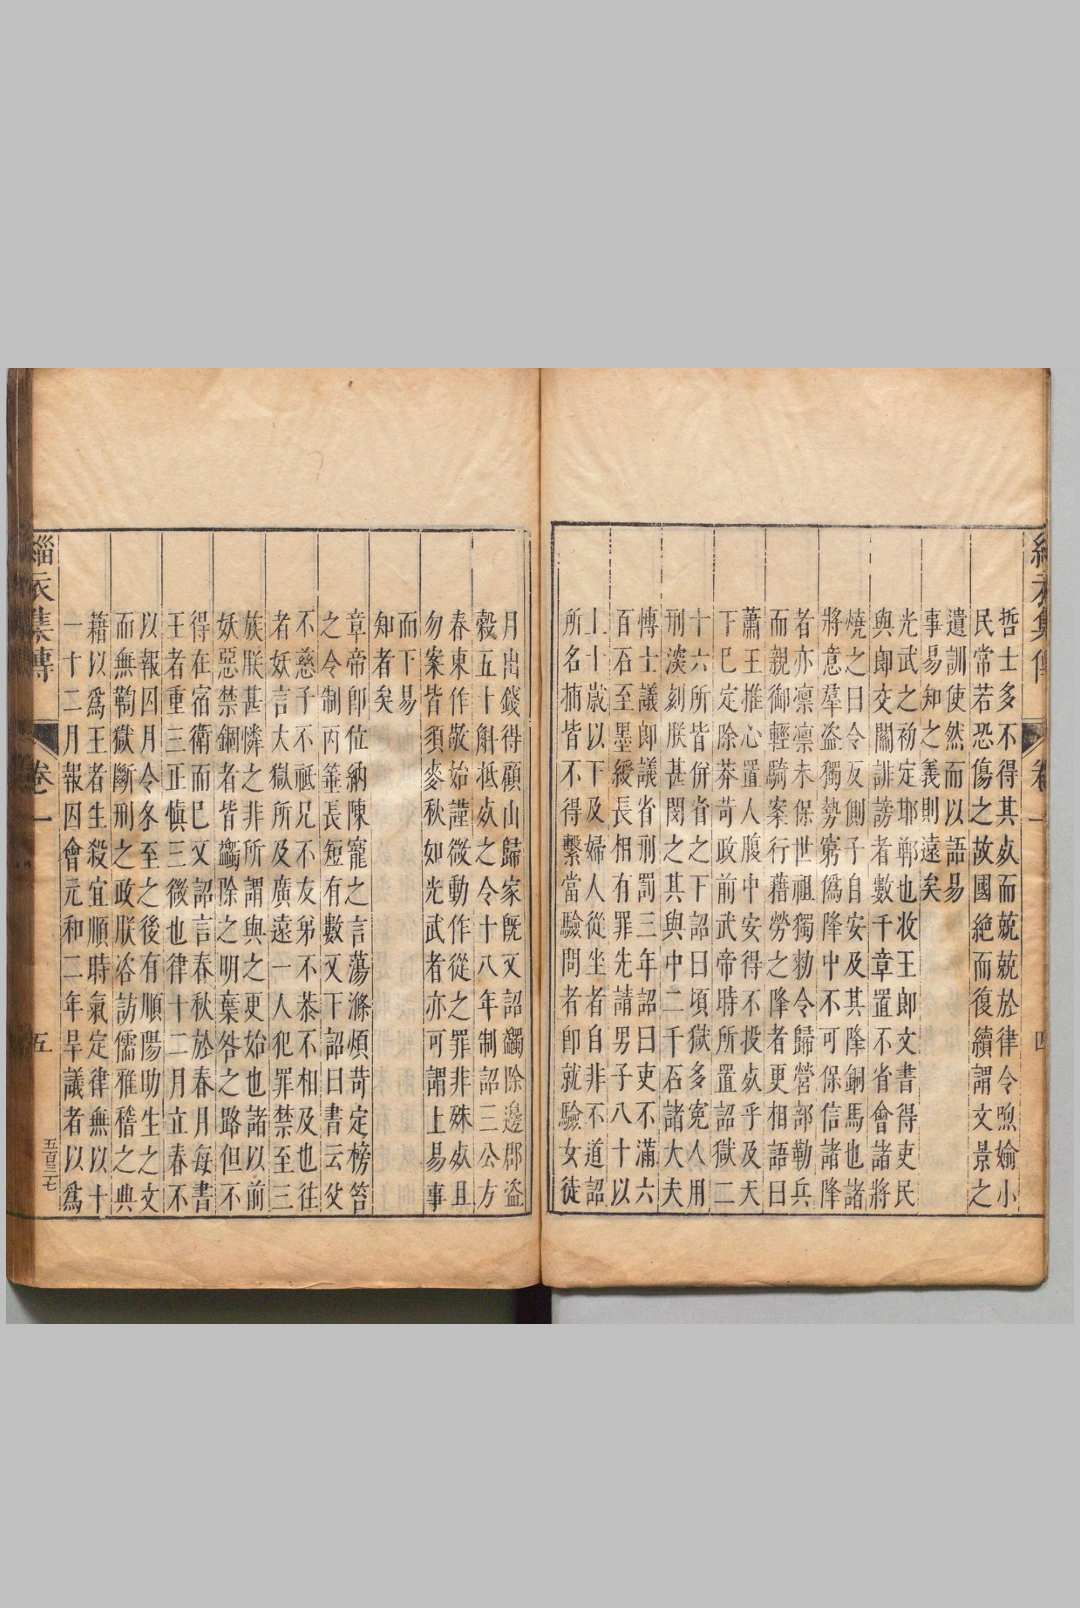 哲士多不得其㱙而兢兢於律令喣媮小
民常若恐傷之故國絶而復續謂文景之
遺訓使然而以語易
事易知之義則遠矣
光武之初定邯鄲也收王郎文書得吏民
與郎交關誹謗者數千章置不省會諸將
燒之曰令反側子自安及其降銅馬也諸
將意羣盗獨勢窮僞降中不可保信諸降
者亦凛凛未保世祖獨勑令歸營部勒兵
而親御輕騎案行藉勞之降者更相語曰
蕭王推心置人腹中安得不投㱙乎及天
下巳定除莽苛政前武帝時所置詔獄二
十六所皆併省之下詔曰頃獄多寃人用
刑深刻朕甚閔之其與中二千石諸大夫
慱士議郎議省刑罰三年詔曰吏不滿六
百石至墨綬長相有罪先請男子八十以
上十歲以下及婦人從坐者自非不道詔
所名捕皆不得繫當驗問者即就驗女徒
緇衣集傳
卷一
四
月出錢得顧山歸家旣又詔蠲除邊郡盗
穀五十斛抵㱙之令十八年制詔三公方
春東作敬始謹微動作從之罪非殊㱙且
勿案皆須麥秋如光武者亦可謂上易事
而下易
知者矣
章帝即位納陳寵之言蕩滌煩苛定榜笞
之令制丙箠長短有數又下詔曰書云父
不慈子不祗兄不友弟不恭不相及也往
者妖言大獄所及廣遠一人犯罪禁至三
族朕甚憐之非所謂與之更始也諸以前
妖惡禁錮者皆蠲除之明棄咎之路但不
得在宿衛而巳又詔言春秋於春月每書
王者重三正慎三微也律十二月立春不
以報囚月令冬至之後有順陽助生之文
而無鞫獄斷刑之政朕咨訪儒雅稽之典
籍以爲王者生殺宜順時氣定律無以十
一十二月報囚會元和二年旱議者以爲
緇衣集傳
卷一
五
五百三七